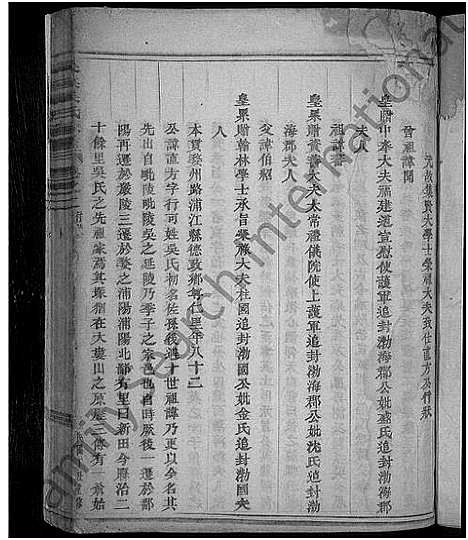 元故集賢大學士榮祿大夫致仕直方公行狀
曾祖諱聞
皇贈中奉大夫福建道宣慰使護軍追封渤海郡公妣盛氏追封渤海郡
夫人
祖諱
皇累贈資善大夫太常禮儀院使上護軍追封渤海郡公妣沈氏追封渤
海郡夫人
父諱伯紹
皇累贈翰林學士承旨榮祿大夫柱國追封渤國公妣金氏追封渤國夫
人
本貫婺州路浦江縣德政鄉 年八十二
公諱直方字行可姓吳氏初名佐孫後避十世祖諱乃更以今名其
先出自毗陵毗陵吳之延陵乃季子之宗邑也自時厥後一遷於鄱
陽再遷於嚴陵三遷於婺之浦陽浦陽北鄙有里曰新田今府治二
十餘里吳氏之先祖家焉其塚 在大婁山之原歷三 有一 始